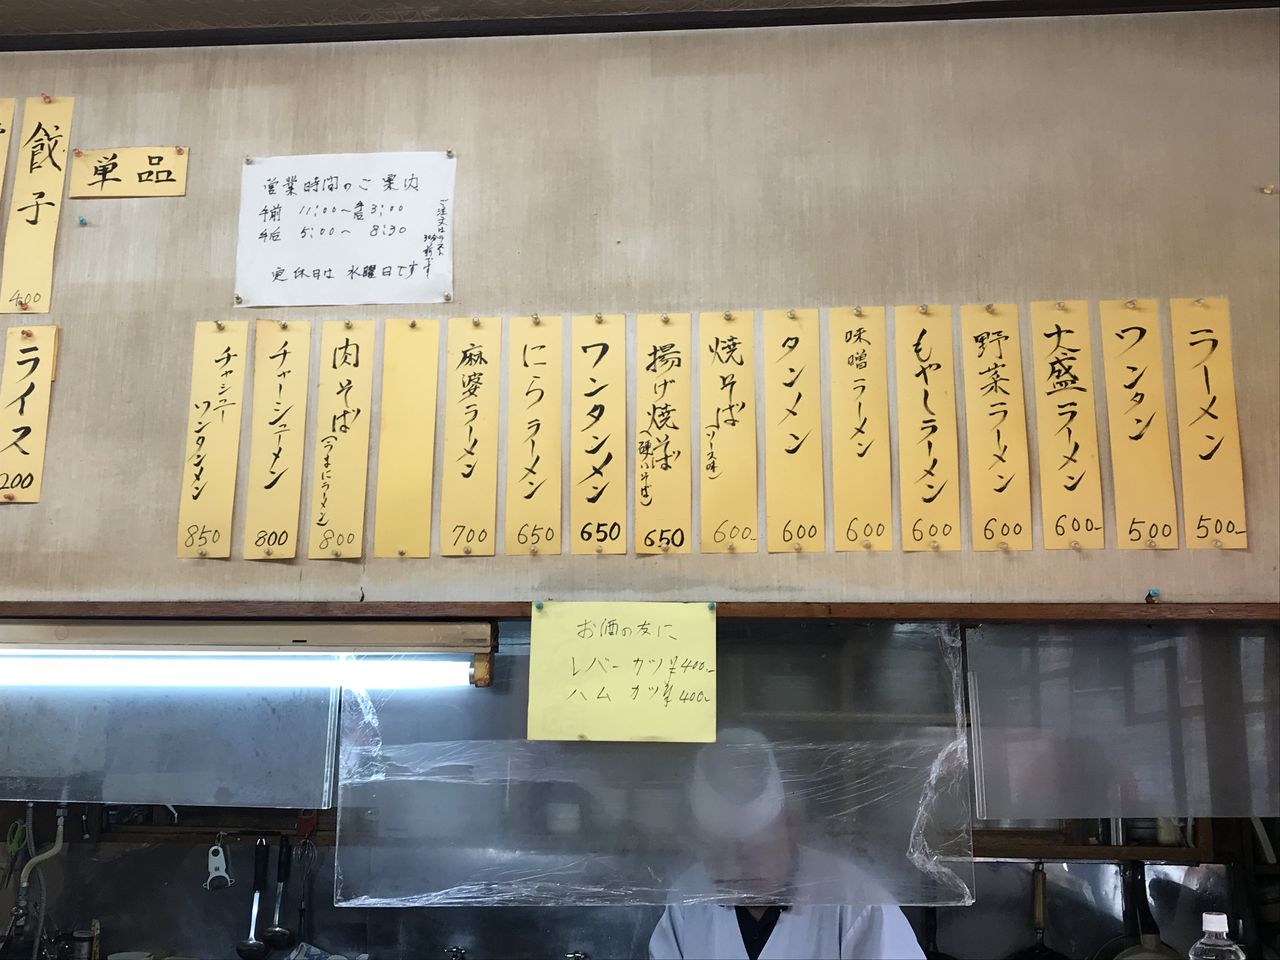 ラーメン 500-
ワンタン 500
大盛ラーメン 600-
野菜ラーメン 600
もやしラーメン 600
味噌ラーメン 600
タンメン 600
焼そば(ソース味) 600-
揚げ焼そば(硬いそば) 650
ワンタンメン 650
にらラーメン 650
麻婆ラーメン 700
肉そば(うまにラーメン) 800
チャーシューメン 800
チャシューワンタンメン 850
営業時間のご案内
午前 11:00〜午后3:00
午后 5:00〜 8:30
定休日は 水曜日です
ご注文はラスト
30分前です!
単品
餃子 400
ライス 200
お酒の友に
レバーカツ ¥400-
ハム カツ ¥400-